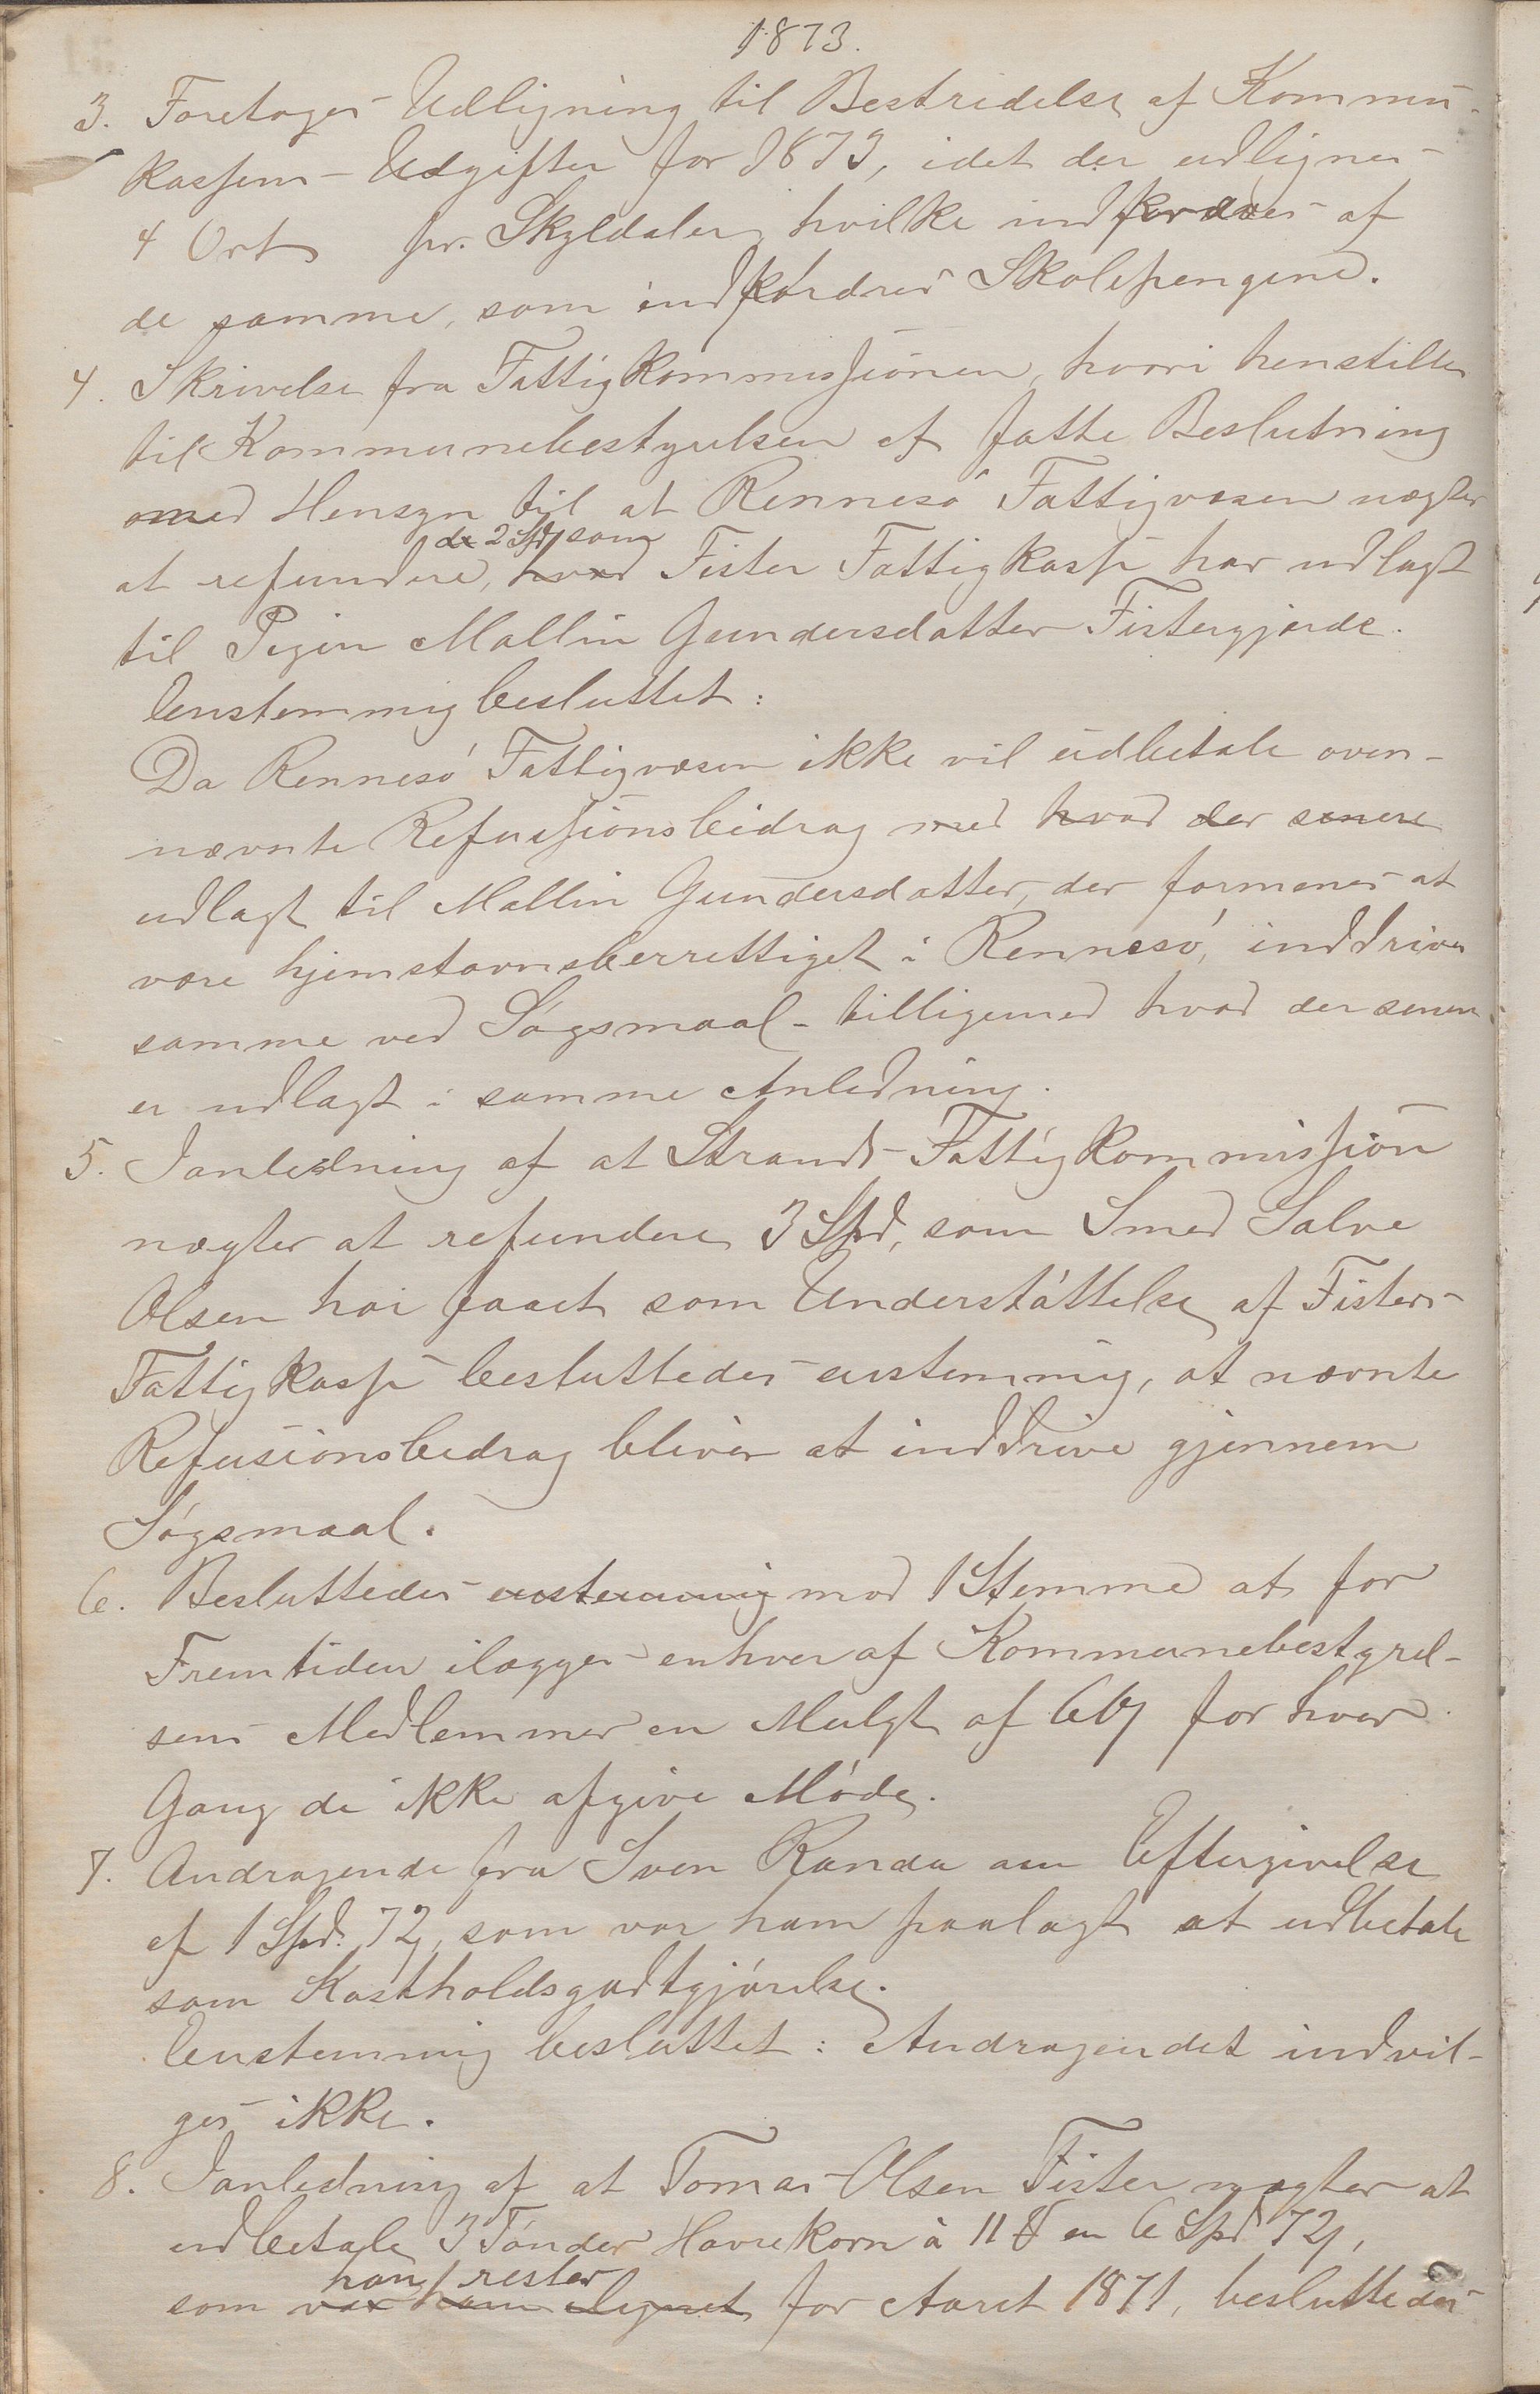 1873.
3. Foretoges Udligning til Bestridelse af Kommu-
kassens Udgifter for 1873, idet der udlignes
4 Ort pr. Skyldaler, hvilke indfordres af
de samme, som indfordrer Skolepengene.
4. Skrivelse fra Fattigkommissionen, hvori henstilles
til Kommunebestyrelsen at fatte Beslutning
med Hensyn til at Rennesö Fattigvæsen nægter
de 2 Spd som
at refundere, hvad Fister Fattigkasse har udlagt
til Pigen Mallin Gundersdatter Fistergjerde.
Eenstemmig besluttet:
Da Rennesö Fattigvæsen ikke vil udbetale oven-
nævnte Refusionsbidrag med hvad der senere
udlagt til Mallin Gundersdatter, der formenes at
være hjemstavnsberrettiget i Rennesö, inddrives
samme ved Sögsmaal tilligemed hvad der senere
er udlagt i samme Anledning.
5. I anledning af at Strands Fattigkommission
nægter at refundere 3 Spd, som Smed Salve
Olsen har faaet som Understöttelse af Fisters
Fattigkasse besluttedes enstemmig, at nævnte
Refusionsbidrag bliver at inddrive gjennem
Sögsmaal.
6. Besluttedes enstemmig mod 1 Stemme at for
Fremtiden ilægges enhver af Kommunebestyrel-
sens Medlemmer en Mulgt af 60 ß for hver
Gang de ikke afgive Möde.
7. Andragende fra Sven Randa om Eftergivelse
af 1 Spd. 72 ß, som var ham paalagt at udbetale
som Kostholdsgodtgjörelse.
Eenstemmig besluttet: Andragendet indvil-
ges ikke.
8. I anledning af at Tomas Olsen Fister nægter at
udbetale 3 Tönder Havrekorn à 11 ₰ en 6 Spd 72 ß,
han rester
som var ham lignet for Aaret 1871, besluttedes